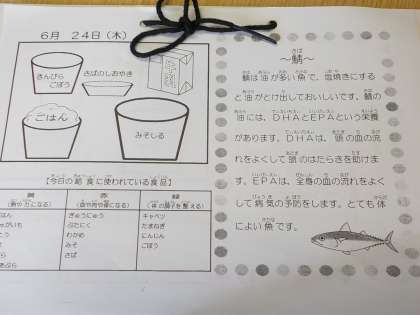 6月 24日(木)
きんぴら
ごぼう
さばのしおやき
牛乳
ごはん
みそしる
【今日の給食に使われている食品】
黄 赤 緑
(熱や力になる) (血や肉や骨になる) (体の調子を整える)
ごはん ぎゅうにゅう キャベツ
じゃがいも ぶたにく たまねぎ
わかめ にんじん
みそ ごぼう
さば
～鯖～
さば
鯖は油が多い魚で、塩焼きにする
と油がとけ出しておいしいです。鯖の
油には、DHAとEPAという栄養
があります。DHAは、頭の血の流
れをよくして頭のはたらきを助けま
す。EPAは、全身の血の流れをよく
して病気の予防をします。とても体
によい魚です。